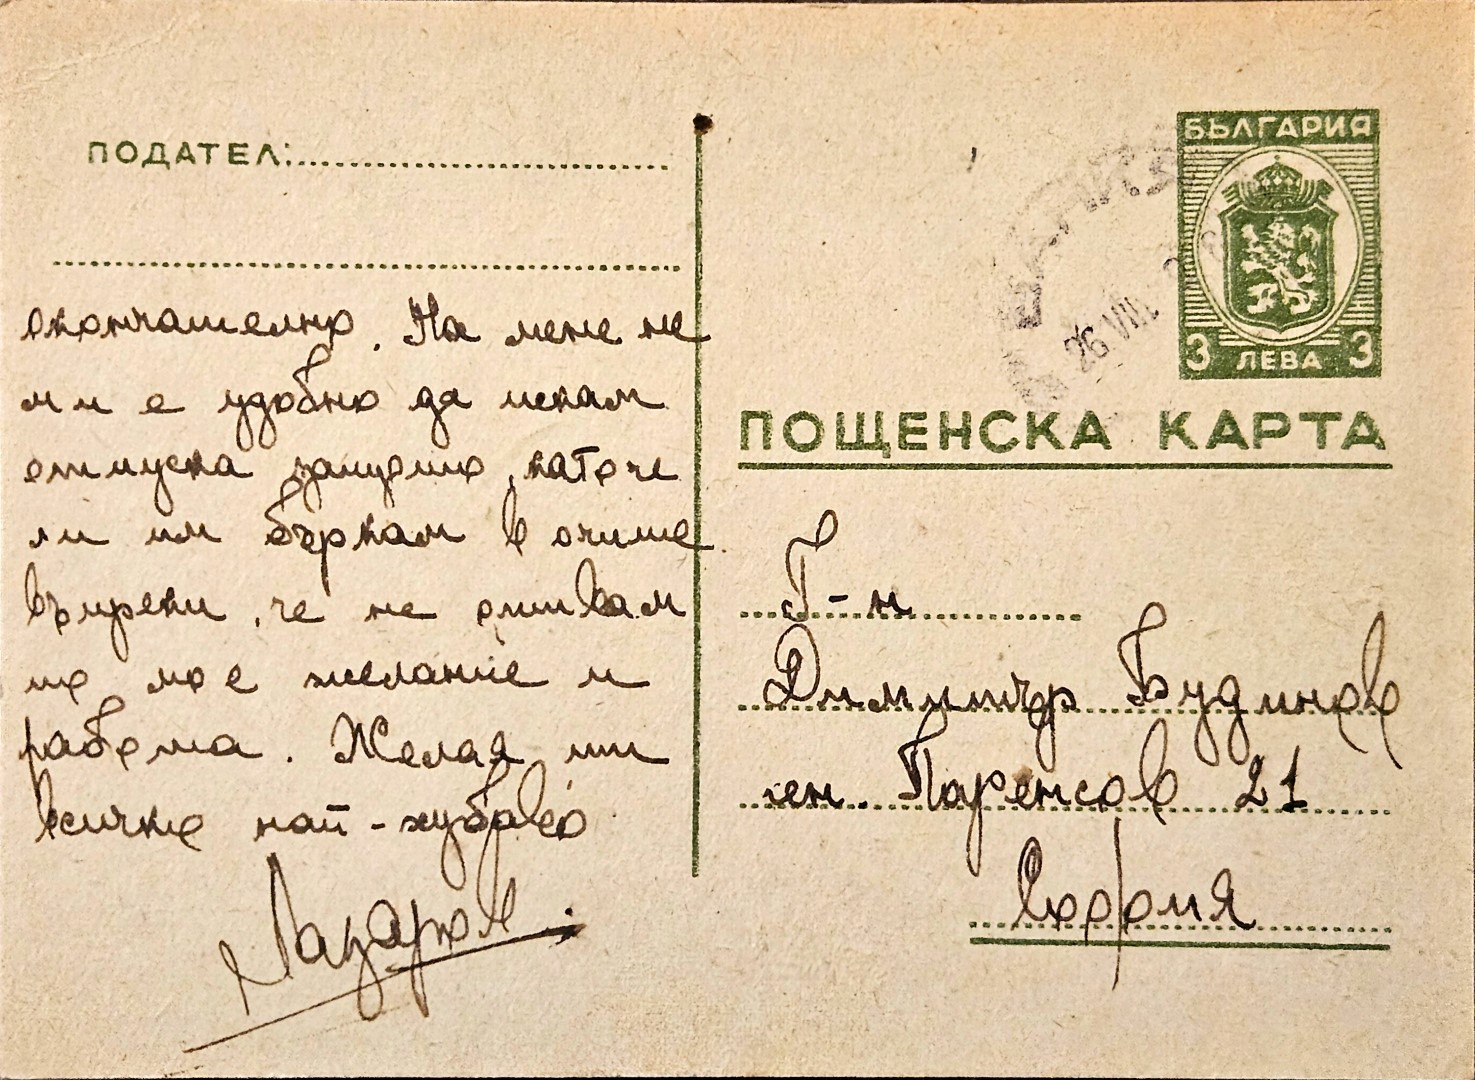 ПОДАТЕЛ:
окончателно. На мене не
ми е удобно да искам
отпуска защото като че
ли им бъркам в очите
въпреки, че не отивам
по мое желание и
работа. Желая ти
всичко най-хубаво
Лазаров
БЪЛГАРИЯ
26 VIII
3 ЛЕВА 3
ПОЩЕНСКА КАРТА
Г-н
Димитър Будинов
ген. Паренсов 21
София